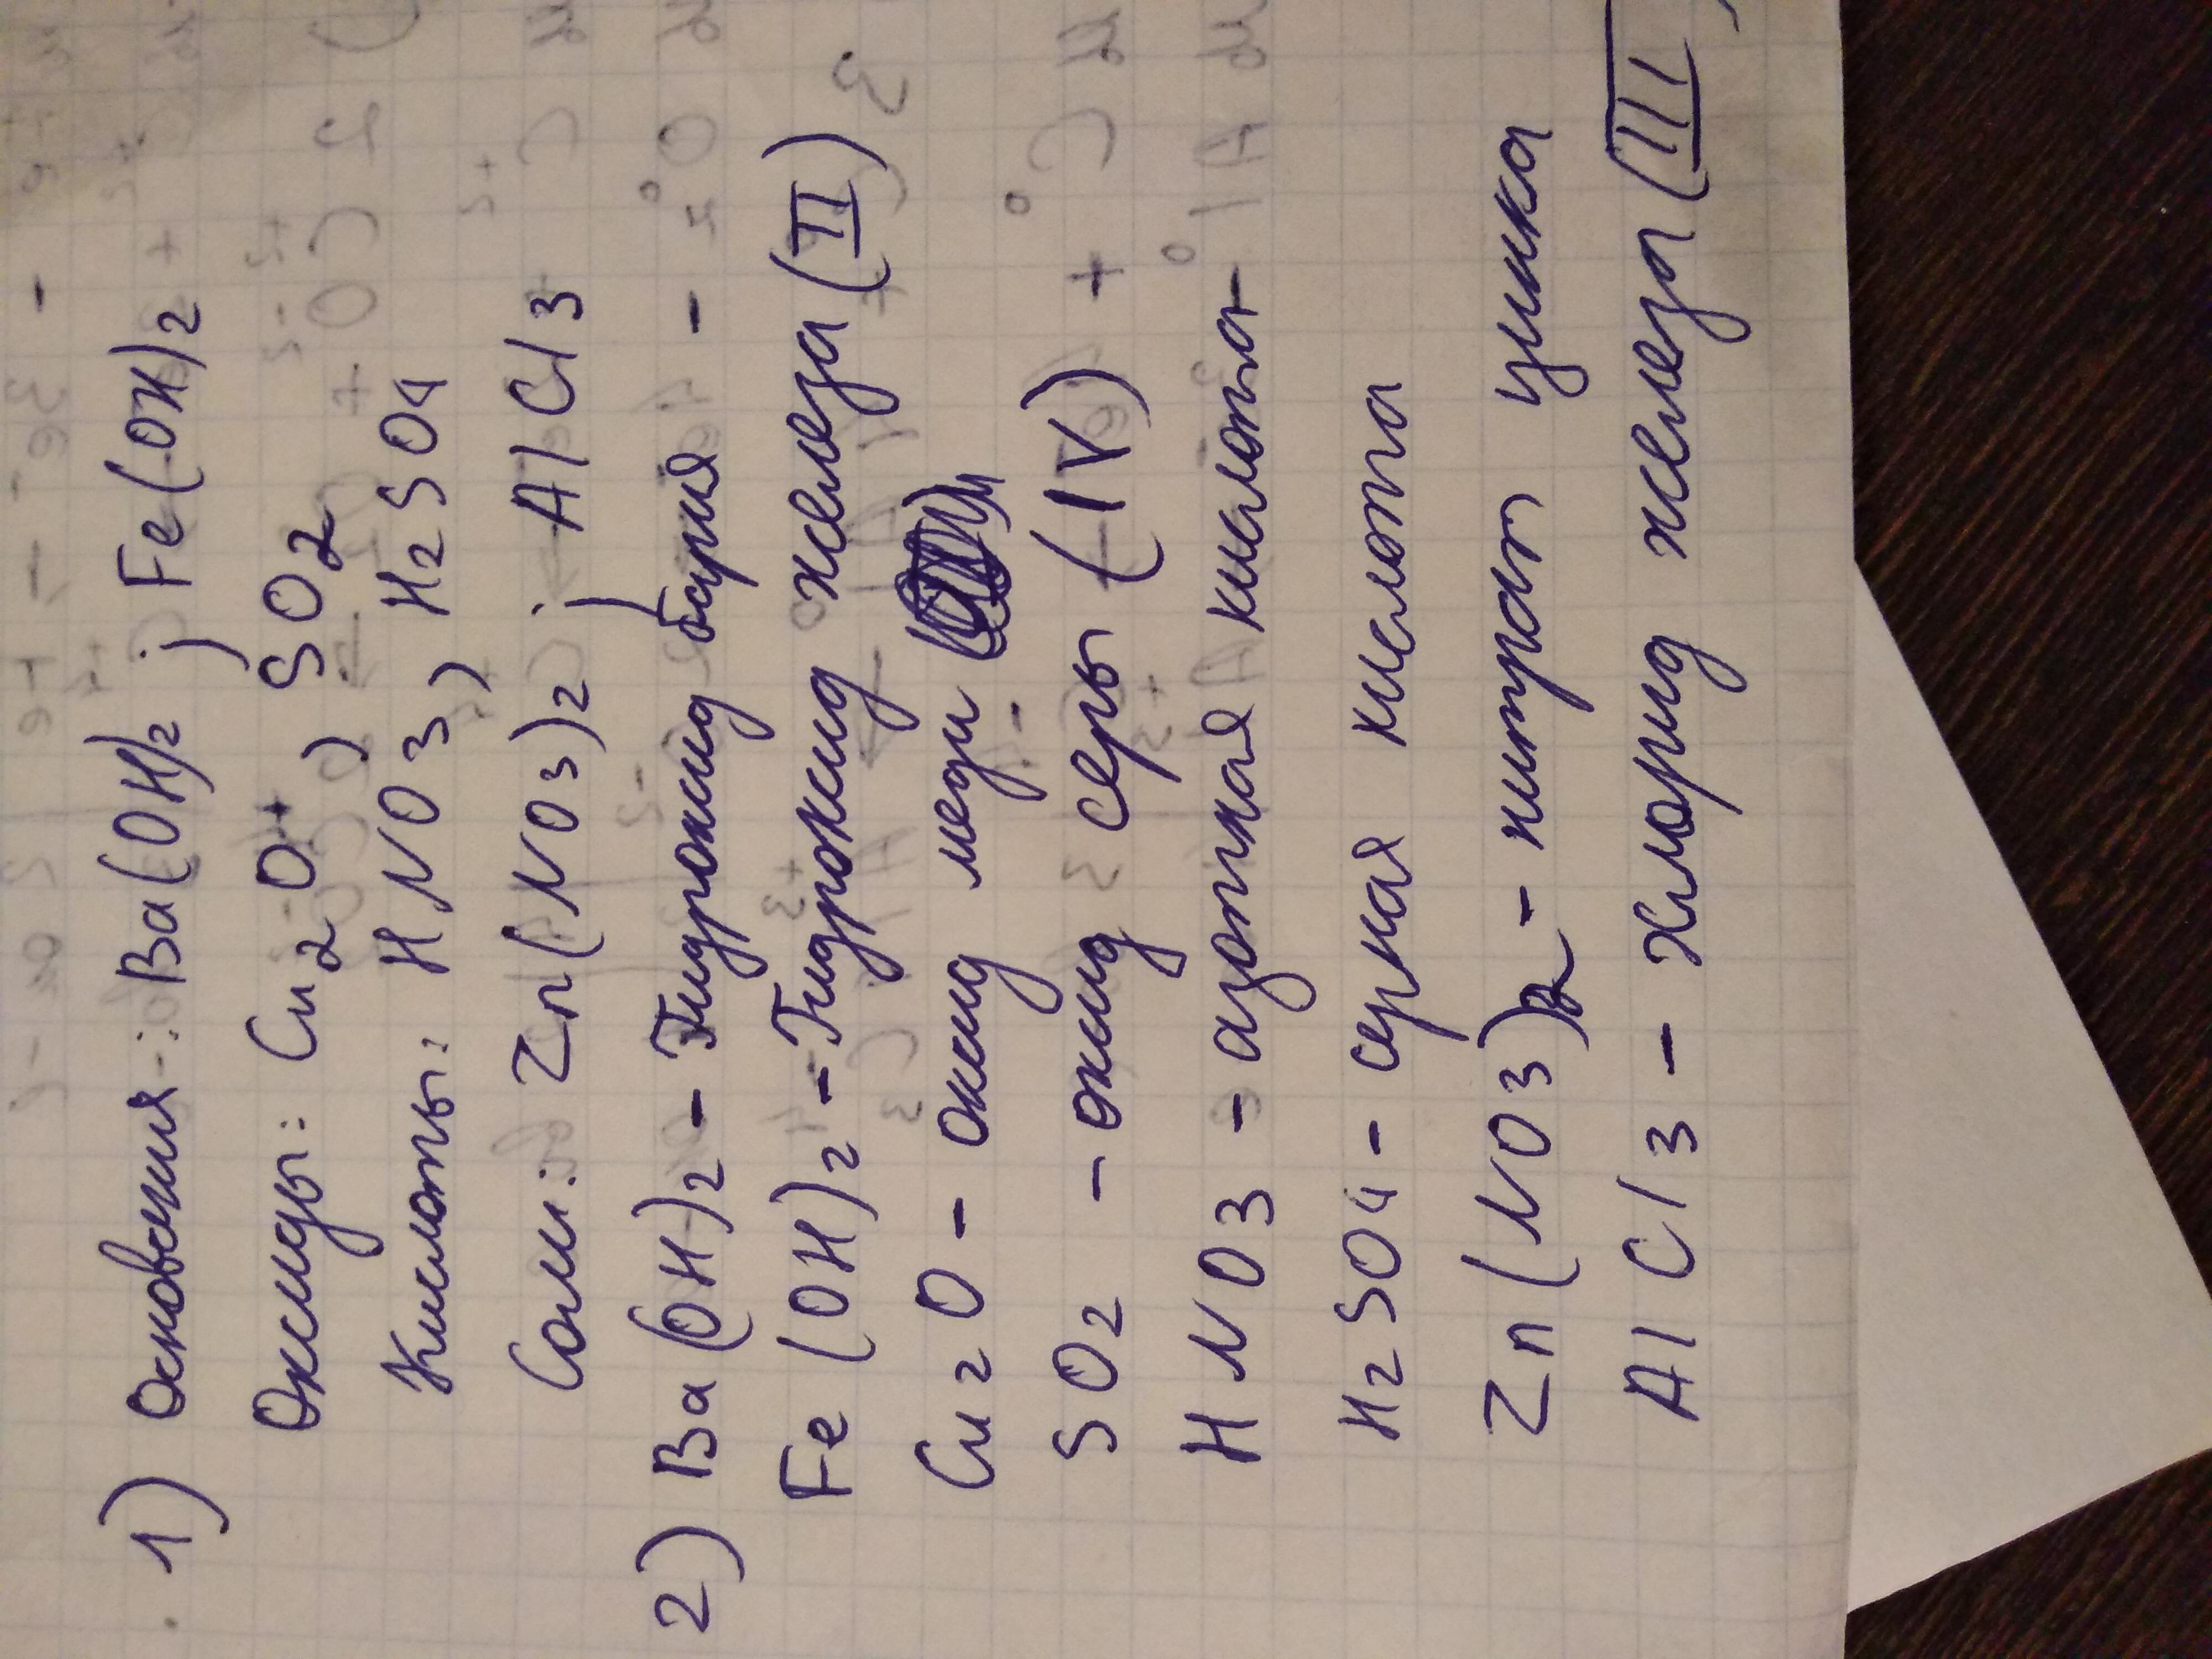 1) Основания: Ba(OH)2; Fe(OH)2
Оксиды: Cu2O, SO2
Кислоты: HNO3, H2SO4
Соли: Zn(NO3)2; AlCl3
2) Ba(OH)2 - Гидроксид бария -
Fe(OH)2 - Гидроксид железа (II)
Cu2O - оксид меди
SO2 - оксид серы (IV)
HNO3 - азотная кислота
H2SO4 - серная кислота
Zn(NO3)2 - нитрат цинка
AlCl3 - хлорид железа (III)